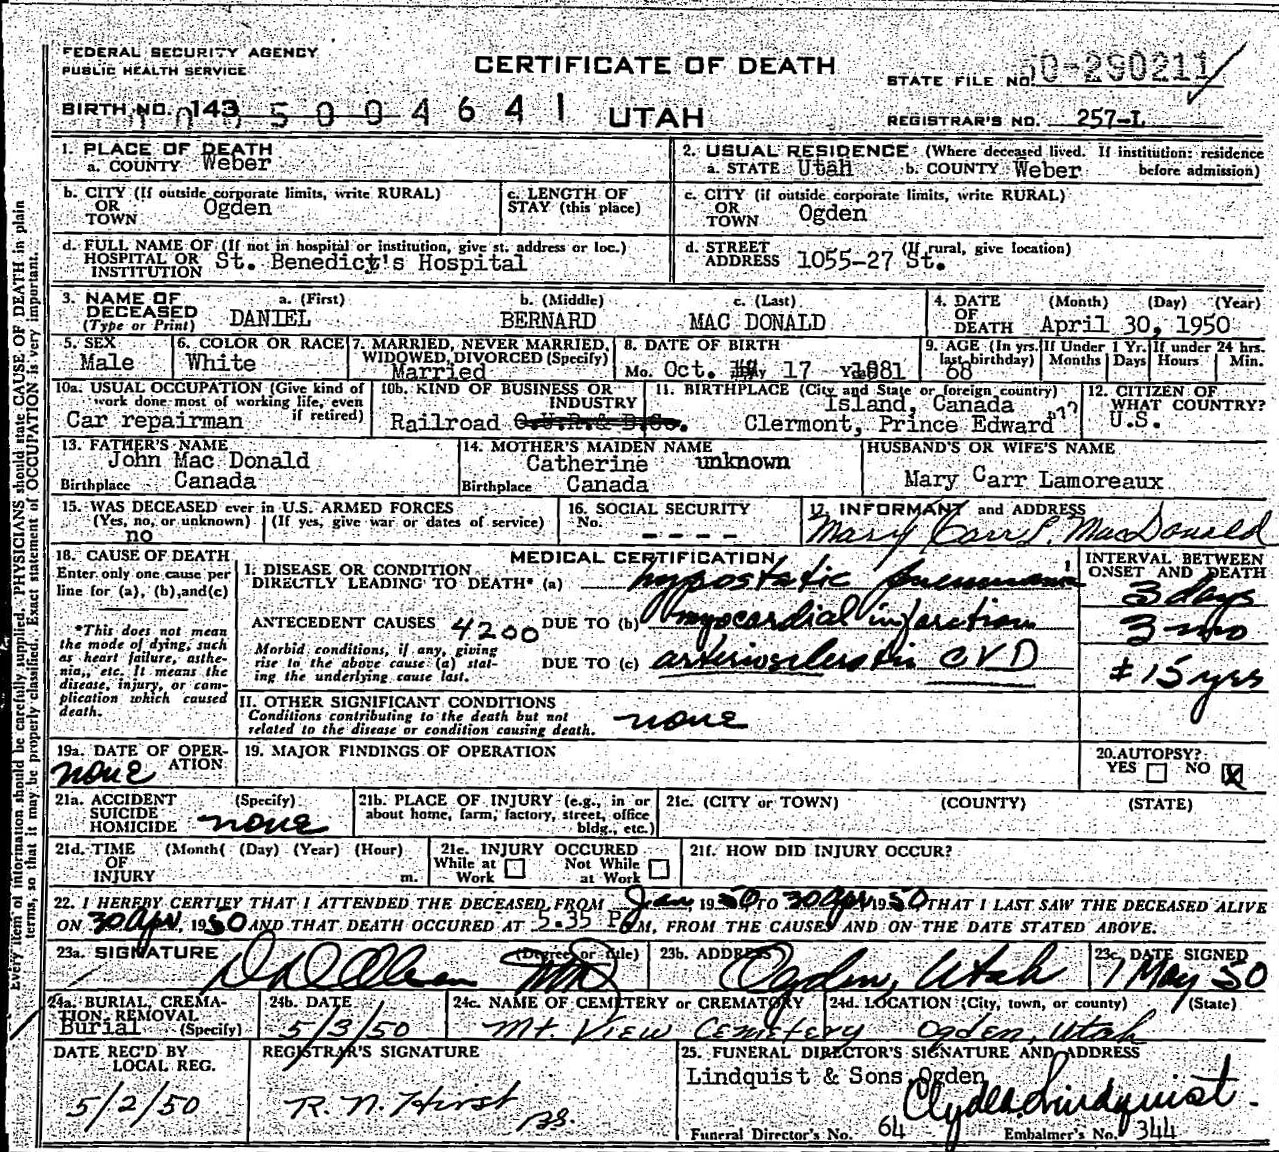 FEDERAL SECURITY AGENCY
PUBLIC HEALTH SERVICE
CERTIFICATE OF DEATH
STATE FILE NO. 50-290211
BIRTH NO. 143 5004641
UTAH
REGISTRAR'S NO. 257-L
1. PLACE OF DEATH
a. COUNTY Weber
2. USUAL RESIDENCE (Where deceased lived. If institution: residence before admission)
a. STATE Utah b. COUNTY Weber
b. CITY (If outside corporate limits, write RURAL)
OR TOWN Ogden
c. LENGTH OF STAY (this place)
c. CITY (if outside corporate limits, write RURAL)
OR TOWN Ogden
d. FULL NAME OF (If not in hospital or institution, give st. address or loc.)
HOSPITAL OR INSTITUTION St. Benedict's Hospital
d. STREET ADDRESS (If rural, give location)
1055-27 St.
3. NAME OF DECEASED (Type or Print)
a. (First) b. (Middle) c. (Last)
DANIEL BERNARD MAC DONALD
4. DATE OF DEATH (Month) (Day) (Year)
April 30, 1950
5. SEX
Male
6. COLOR OR RACE
White
7. MARRIED, NEVER MARRIED, WIDOWED, DIVORCED (Specify)
Married
8. DATE OF BIRTH
Mo. Oct. 17 1881
9. AGE (In yrs. last birthday)
68
If Under 1 Yr. Months Days
If under 24 hrs. Hours Min.
10a. USUAL OCCUPATION (Give kind of work done most of working life, even if retired)
Car repairman
10b. KIND OF BUSINESS OR INDUSTRY
Railroad O.U.R.& D.Co.
11. BIRTHPLACE (City and State or foreign country)
Island, Canada
Clermont, Prince Edward
12. CITIZEN OF WHAT COUNTRY?
U.S.
13. FATHER'S NAME
John Mac Donald
Birthplace Canada
14. MOTHER'S MAIDEN NAME
Catherine unknown
Birthplace Canada
HUSBAND'S OR WIFE'S NAME
Mary Carr Lamoreaux
15. WAS DECEASED ever in U.S. ARMED FORCES
(Yes, no, or unknown) (If yes, give war or dates of service)
no
16. SOCIAL SECURITY
No. ----
17. INFORMANT and ADDRESS
Mary Carr L. MacDonald
18. CAUSE OF DEATH
Enter only one cause per line for (a), (b), and (c)
*This does not mean the mode of dying, such as heart failure, asthenia, etc. It means the disease, injury, or complication which caused death.
MEDICAL CERTIFICATION
I. DISEASE OR CONDITION DIRECTLY LEADING TO DEATH* (a) hypostatic pneumonia
ANTECEDENT CAUSES 4200 DUE TO (b) myocardial infarction
Morbid conditions, if any, giving rise to the above cause (a) stating the underlying cause last.
DUE TO (c) arteriosclerotic CVD
INTERVAL BETWEEN ONSET AND DEATH
3 days
3 mo
± 15 yrs
II. OTHER SIGNIFICANT CONDITIONS
Conditions contributing to the death but not related to the disease or condition causing death.
none
19a. DATE OF OPERATION
none
19. MAJOR FINDINGS OF OPERATION
20. AUTOPSY?
YES NO X
21a. ACCIDENT SUICIDE HOMICIDE (Specify)
none
21b. PLACE OF INJURY (e.g., in or about home, farm, factory, street, office bldg., etc.)
21c. (CITY or TOWN) (COUNTY) (STATE)
21d. TIME OF INJURY (Month( (Day) (Year) (Hour) m.
21e. INJURY OCCURED
While at Work Not While at Work
21f. HOW DID INJURY OCCUR?
22. I HEREBY CERTIFY THAT I ATTENDED THE DECEASED FROM Jan, 1950, TO 30 Apr, 1950 THAT I LAST SAW THE DECEASED ALIVE
ON 30 Apr, 1950 AND THAT DEATH OCCURED AT 5.35 P M, FROM THE CAUSES AND ON THE DATE STATED ABOVE.
23a. SIGNATURE (Degree or title)
Olsen MD
23b. ADDRESS
Ogden, Utah
23c. DATE SIGNED
1 May 50
24a. BURIAL, CREMATION, REMOVAL (Specify)
Burial
24b. DATE
5/3/50
24c. NAME OF CEMETERY or CREMATORY
Mt. View Cemetery
24d. LOCATION (City, town, or county) (State)
Ogden, Utah
DATE REC'D BY LOCAL REG.
5/2/50
REGISTRAR'S SIGNATURE
R. N. Hirst
25. FUNERAL DIRECTOR'S SIGNATURE AND ADDRESS
Lindquist & Sons, Ogden
Clyde Lindquist
Funeral Director's No. 64 Embalmer's No. 344
Every item of information should be carefully supplied. PHYSICIANS should state CAUSE OF DEATH in plain
terms, so that it may be properly classified. Exact statement of OCCUPATION is very important.